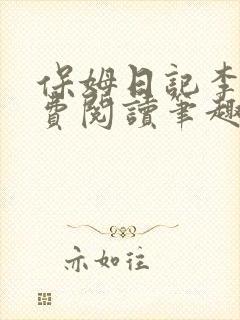 保姆日記李
費閱讀筆趣
亦如往